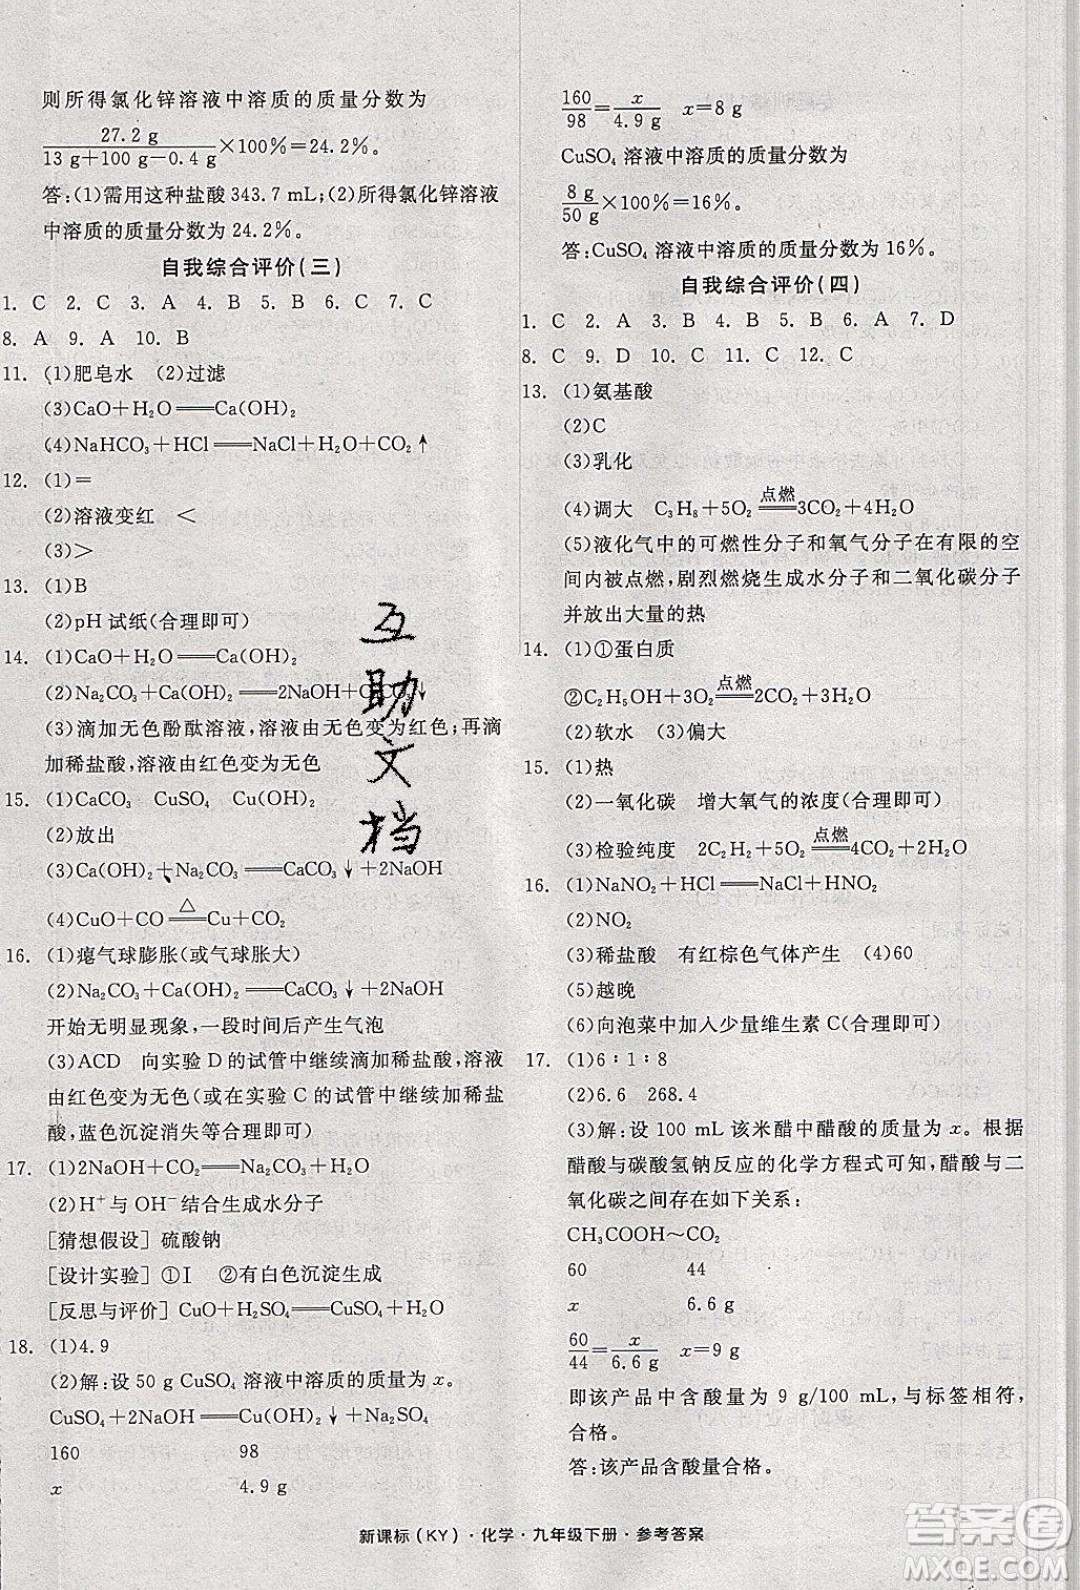 则所得氯化锌溶液中溶质的质量分数为
27.2 g
13 g+100 g-0.4 g ×100%=24.2%。
答:(1)需用这种盐酸 343.7 mL;(2)所得氯化锌溶液
中溶质的质量分数为 24.2%。
自我综合评价(三)
1. C 2. C 3. A 4. B 5. B 6. C 7. C
8. A 9. A 10. B
11. (1)肥皂水 (2)过滤
(3)CaO+H₂O══Ca(OH)₂
(4)NaHCO₃+HCl══NaCl+H₂O+CO₂↑
12. (1)=
(2)溶液变红 <
(3)>
13. (1)B
(2)pH 试纸(合理即可)
14. (1)CaO+H₂O══Ca(OH)₂
(2)Na₂CO₃+Ca(OH)₂══2NaOH+CaCO₃↓
(3)滴加无色酚酞溶液,溶液由无色变为红色;再滴
加稀盐酸,溶液由红色变为无色
15. (1)CaCO₃ CuSO₄ Cu(OH)₂
(2)放出
(3)Ca(OH)₂+Na₂CO₃══CaCO₃↓+2NaOH
(4)CuO+CO══Cu+CO₂
△
16. (1)瘪气球膨胀(或气球胀大)
(2)Na₂CO₃+Ca(OH)₂══CaCO₃↓+2NaOH
开始无明显现象,一段时间后产生气泡
(3)ACD 向实验 D 的试管中继续滴加稀盐酸,溶液
由红色变为无色(或在实验 C 的试管中继续加稀盐
酸,蓝色沉淀消失等合理即可)
17. (1)2NaOH+CO₂══Na₂CO₃+H₂O
(2)H⁺与 OH⁻结合生成水分子
[猜想假设] 硫酸钠
[设计实验] ①Ⅰ ②有白色沉淀生成
[反思与评价] CuO+H₂SO₄══CuSO₄+H₂O
18. (1)4.9
(2)解:设 50 g CuSO₄ 溶液中溶质的质量为 x。
CuSO₄+2NaOH══Cu(OH)₂↓+Na₂SO₄
160 98
x 4.9 g
160/98=x/4.9 g x=8 g
CuSO₄ 溶液中溶质的质量分数为
8 g/50 g×100%=16%。
答:CuSO₄ 溶液中溶质的质量分数为 16%。
自我综合评价(四)
1. C 2. A 3. B 4. B 5. B 6. A 7. D
8. C 9. D 10. C 11. C 12. C
13. (1)氨基酸
(2)C
(3)乳化
(4)调大 C₃H₈+5O₂══点燃══3CO₂+4H₂O
(5)液化气中的可燃性分子和氧气分子在有限的空
间内被点燃,剧烈燃烧生成水分子和二氧化碳分子
并放出大量的热
14. (1)①蛋白质
②C₂H₅OH+3O₂══点燃══2CO₂+3H₂O
(2)软水 (3)偏大
15. (1)热
(2)一氧化碳 增大氧气的浓度(合理即可)
(3)检验纯度 2C₂H₂+5O₂══点燃══4CO₂+2H₂O
16. (1)NaNO₂+HCl══NaCl+HNO₂
(2)NO₂
(3)稀盐酸 有红棕色气体产生 (4)60
(5)越晚
(6)向泡菜中加入少量维生素 C(合理即可)
17. (1)6∶1∶8
(2)6.6 268.4
(3)解:设 100 mL 该米醋中醋酸的质量为 x。根据
醋酸与碳酸氢钠反应的化学方程式可知,醋酸与二
氧化碳之间存在如下关系:
CH₃COOH~CO₂
60 44
x 6.6 g
60/44=x/6.6 g x=9 g
即该产品中含酸量为 9 g/100 mL,与标签相符,
合格。
答:该产品含酸量合格。
互助文档
新课标(KY)·化学·九年级下册·参考答案
答案圈
MXQE.COM